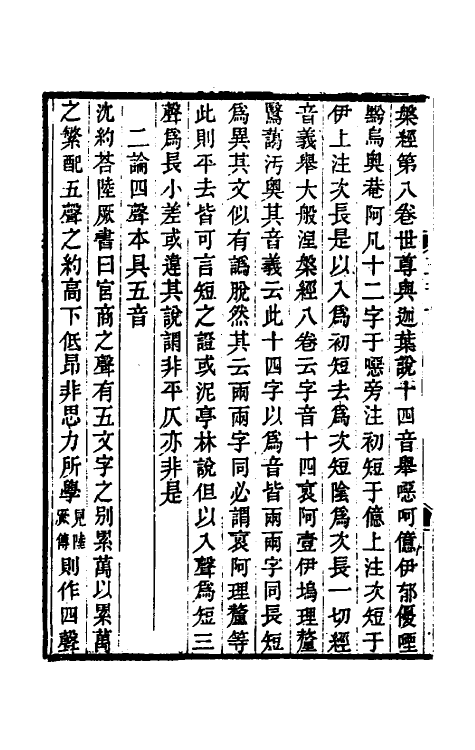 槃經第八卷世尊與迦葉說十四音舉噁呵億伊郁優哩
黟烏奧菴阿凡十二字于噁旁注初短于億上注次短于
伊上注次長是以入爲初短去爲次短陰爲次長一切經
音義舉大般湼槃經八卷云字音十四哀阿壹伊塢理釐
黳藹汚奧其音義云此十四字以爲音皆兩兩字同長短
爲異其文似有譌脫然其云兩兩字同必謂哀阿理釐等
此則平去皆可言短之證或泥亭林說但以入聲爲短三
聲爲長小差或違其說謂非平仄亦非是
二論四聲本具五音
沈約荅陸厥書曰宮商之聲有五文字之別累萬以累萬
之繁配五聲之約高下低昂非思力所學見陸厥傳則作四聲